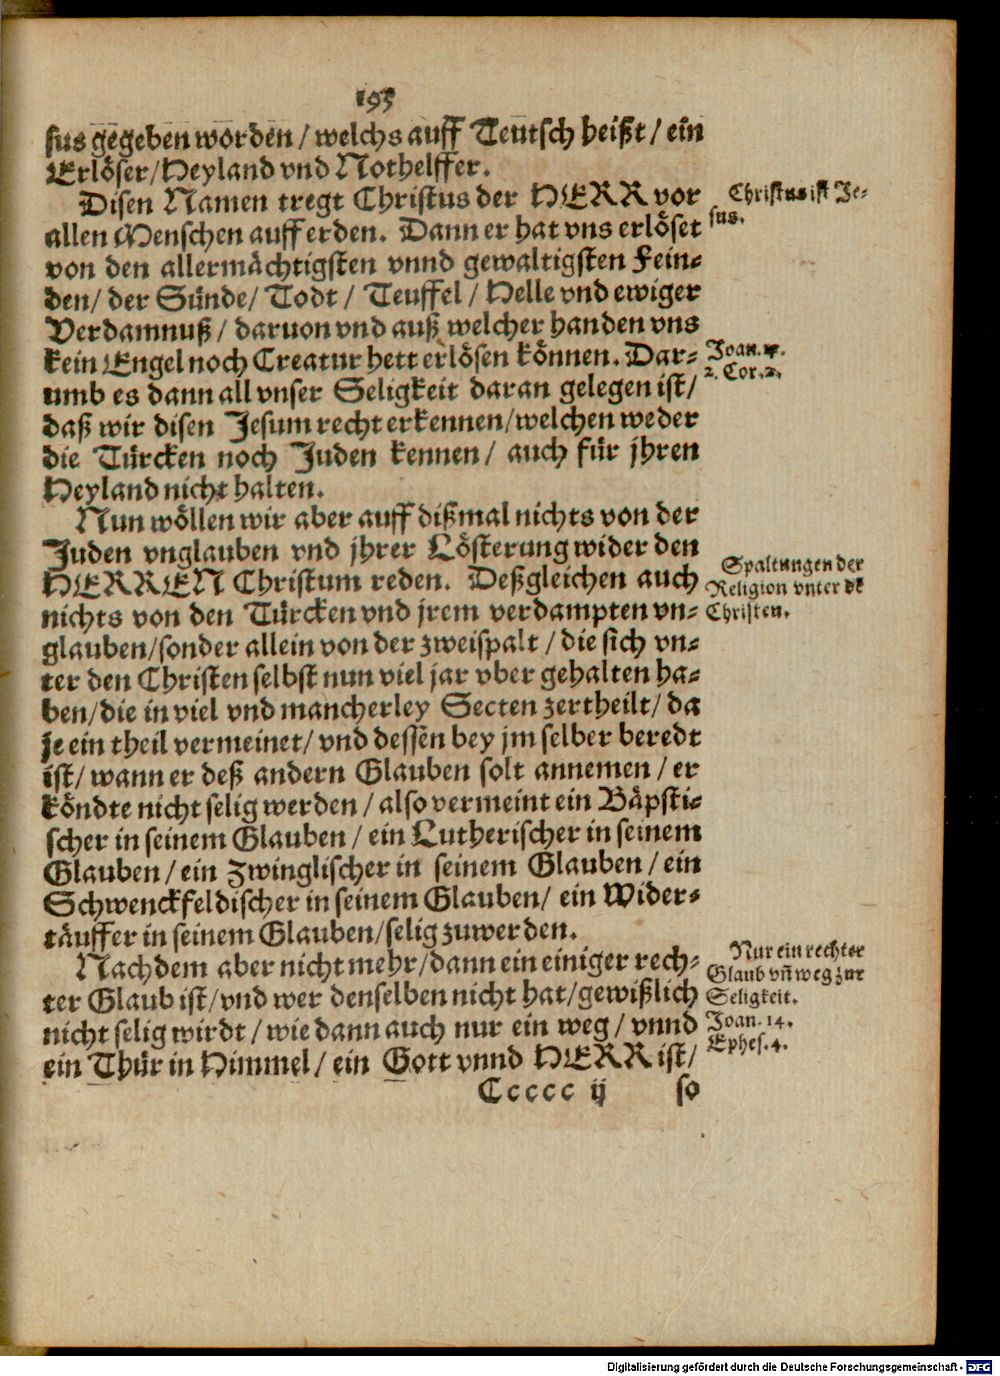 193
sus gegeben worden / welchs auff Teutsch heißt / ein
Erlöser / Heyland vnd Nothelffer.
Disen Namen tregt Christus der HERR vor
allen Menschen auff erden. Dann er hat vns erlöset
von den allermächtigsten vnnd gewaltigsten Fein⸗
den / der Sünde / Todt / Teuffel / Helle vnd ewiger
Verdamnuß / daruon vnd auß welcher handen vns
kein Engel noch Creatur hett erlösen können. Dar⸗
umb es dann all vnser Seligkeit daran gelegen ist /
daß wir disen Jesum recht erkennen / welchen weder
die Türcken noch Juden kennen / auch für jhren
Heyland nicht halten.
Christus ist Je⸗
sus.
Joan.
2. Cor. 2.
Nun wöllen wir aber auff dißmal nichts von der
Juden vnglauben vnd jhrer Lösterung wider den
HERREN Christum reden. Deßgleichen auch
nichts von den Türcken vnd jrem verdampten vn⸗
glauben / sonder allein von der zweispalt / die sich vn⸗
ter den Christen selbst nun viel jar vber gehalten ha⸗
ben / die in viel vnd mancherley Secten zertheilt / da
je ein theil vermeinet / vnd dessen bey jm selber beredt
ist / wann er deß andern Glauben solt annemen / er
köndte nicht selig werden / also vermeint ein Bäpsti⸗
scher in seinem Glauben / ein Lutherischer in seinem
Glauben / ein Zwinglischer in seinem Glauben / ein
Schwenckfeldischer in seinem Glauben / ein Wider⸗
täuffer in seinem Glauben / selig zuwerden.
Spaltungen der
Religion vnter dē
Christen.
Nach dem aber nicht mehr / dann ein einiger rech⸗
ter Glaub ist / vnd wer denselben nicht hat / gewißlich
nicht selig wirdt / wie dann auch nur ein weg / vnnd
ein Thür in Himmel / ein Gott vnnd HERR ist /
Nur ein rechter
Glaub vñ weg zur
Seligkeit.
Joan. 14.
Ephes. 4.
Ccccc ij so
Digitalisierung gefördert durch die Deutsche Forschungsgemeinschaft - DFG